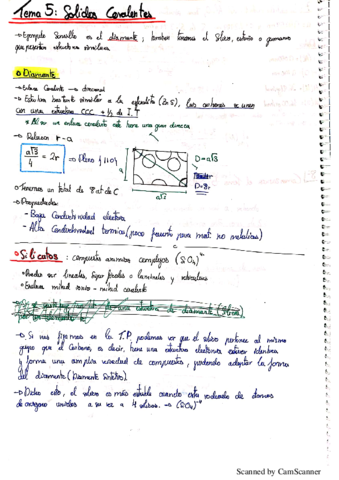 Tema 5: Solidos Covalentes
→ Ejemplo Sencillo es el diamante, tambien tenemos el Silicio, estaño o germanio
que presentan estructuras similares
Diamante
→ Enlace Covalente → direccional
→ Estructura bastante similar a la esfalerita (ZnS), los carbonos se unen
con una estructura CCC + ½ de I.T
* Al ser un enlace covalente este tiene una gran dureza
→ Relacion r-a
a√3/4 = 2r
→ Plano {110}
D=a√3
D=8r
a
a√2
→ Tenemos un total de 8 at de C
→ Propiedades
- Baja Conductividad electrica
- Alta Conductividad termica (poco frecuente para mat. no metalicos)
Silicatos: compuestos anionicos complejos (SiO4)⁴⁻
→ Pueden ser lineales, tipo fibrilla o laminales y reticulares
→ Enlace mitad ionico - mitad covalente
→ Si nos fijamos en la T.P, podemos ver que el silicio pertenece al mismo
grupo que el Carbono, es decir, tiene una estructura electronica exterior identica
y forma una amplia variedad de compuestos, pudiendo adoptar la forma
del diamante (Diamante Sintetico)
→ Dicho esto, el silicio es más estable cuando esta rodeado de atomos
de oxigeno unidos a su vez a 4 silicios. → (SiO4)⁴⁻
Scanned by CamScanner